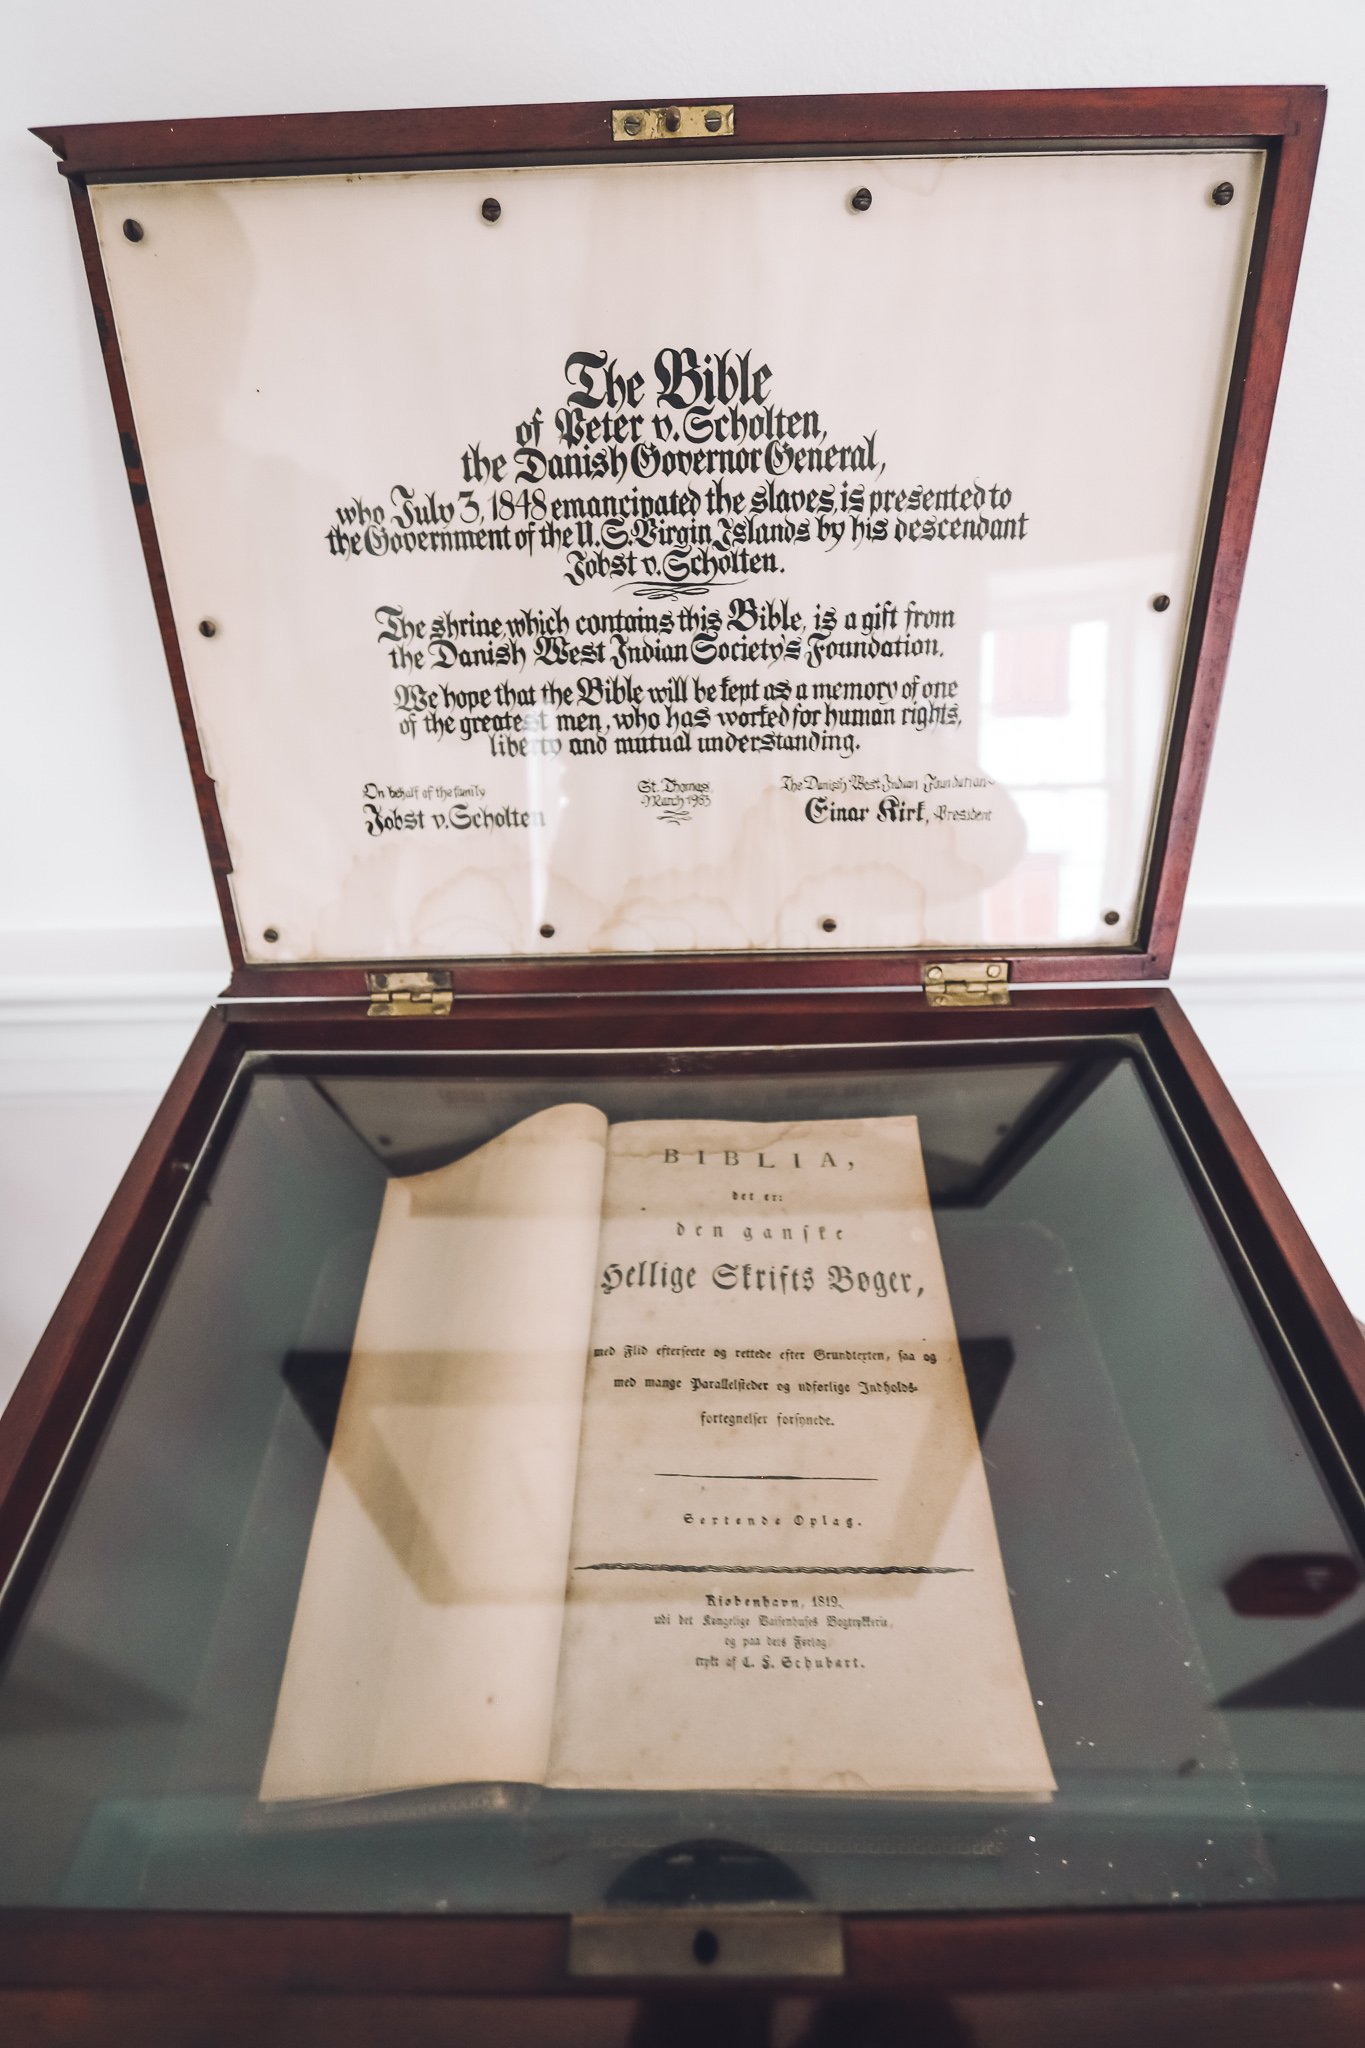 The Bible
of Peter v. Scholten,
the Danish Governor General,
who July 3, 1848 emancipated the slaves, is presented to
the Government of the U.S. Virgin Islands by his descendant
Jobst v. Scholten.
The shrine, which contains this Bible, is a gift from
the Danish West Indian Society's Foundation.
We hope that the Bible will be kept as a memory of one
of the greatest men, who has worked for human rights,
liberty and mutual understanding.
On behalf of the family
Jobst v. Scholten
St. Thomas,
March 1983
The Danish West Indian Foundation
Einar Kirk, President
BIBLIA,
det er:
den ganske
Hellige Skrifts Bøger,
med Flid efterseete og rettede efter Grundtexten, saa og
med mange Parallelsteder og udførlige Indholds-
fortegnelser forsynede.
Sextende Oplag.
Kiøbenhavn, 1819.
udi det Kongelige Vaisenhuses Bogtrykkerie,
og paa dets Forlag
trykt af C. F. Schubart.